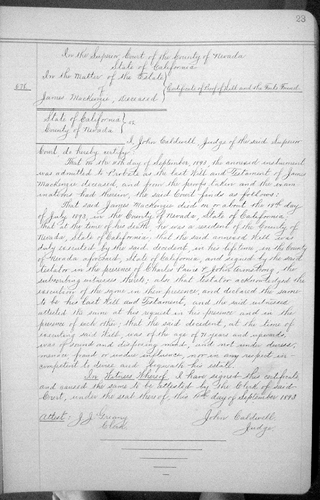 23
In the Superior Court of the County of Nevada
State of California
In the Matter of the Estate
of
James Mackenzie, deceased
Certificate of Proof of Will and the Facts Found
State of California
County of Nevada } ss
I, John Caldwell Judge of the said Superior
Court, do hereby certify:
That on the day of September, 1893, the annexed instrument
was admitted to Probate as the last Will and Testament of James
Mackenzie deceased, and from the proofs taken and the exami-
nations had therein, the said Court finds as follows:
That said James Mackenzie died on or about the 19th day
of July 1893, in the County of Nevada, State of California
That at the time of his death he was a resident of the County of
Nevada, State of California, that the said annexed Will was
duly executed by the said decedent, in his lifetime, in the County
of Nevada aforesaid, State of California, and signed by the said
testator in the presence of Charles and John Armstrong, the
subscribing witnesses thereto; also that testator acknowledged the
execution of the same in their presence, and declared the same
to be his last Will and Testament, and the said witnesses
attested the same at his request in his presence and in the
presence of each other; that the said decedent, at the time of
executing said Will, was of the age of years and upwards,
was of sound and disposing mind, and not under duress,
menace, fraud or undue influence, nor in any respect in-
competent to devise and bequeath his estate.
In Witness Whereof, I have signed this certificate
and caused the same to be attested by the Clerk of said
Court, under the seal thereof, this day of September 1893
Attest: J. J. Greany John Caldwell
Clerk Judge